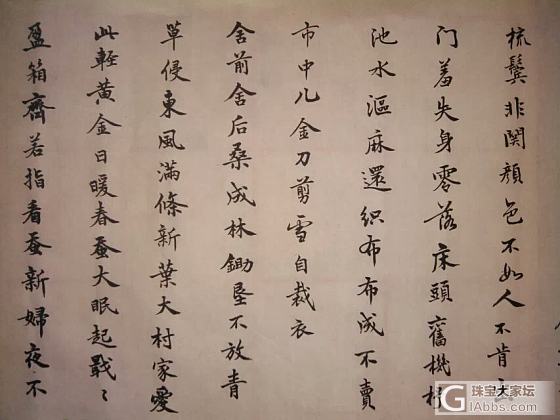 梳鬓非関顔色不如人不肯
门羞失身零落床頭舊機
池水漚麻還织布布成不賣
市中儿金刀剪雪自裁衣
舍前舍后桑成林鋤垦不放青
草侵東風滿條新葉大村家愛
此輕黄金日暖春蚕大眠起戢〻
盈箱齊若指看蚕新婦夜不
珠宝大家坛
GIAbbs.com